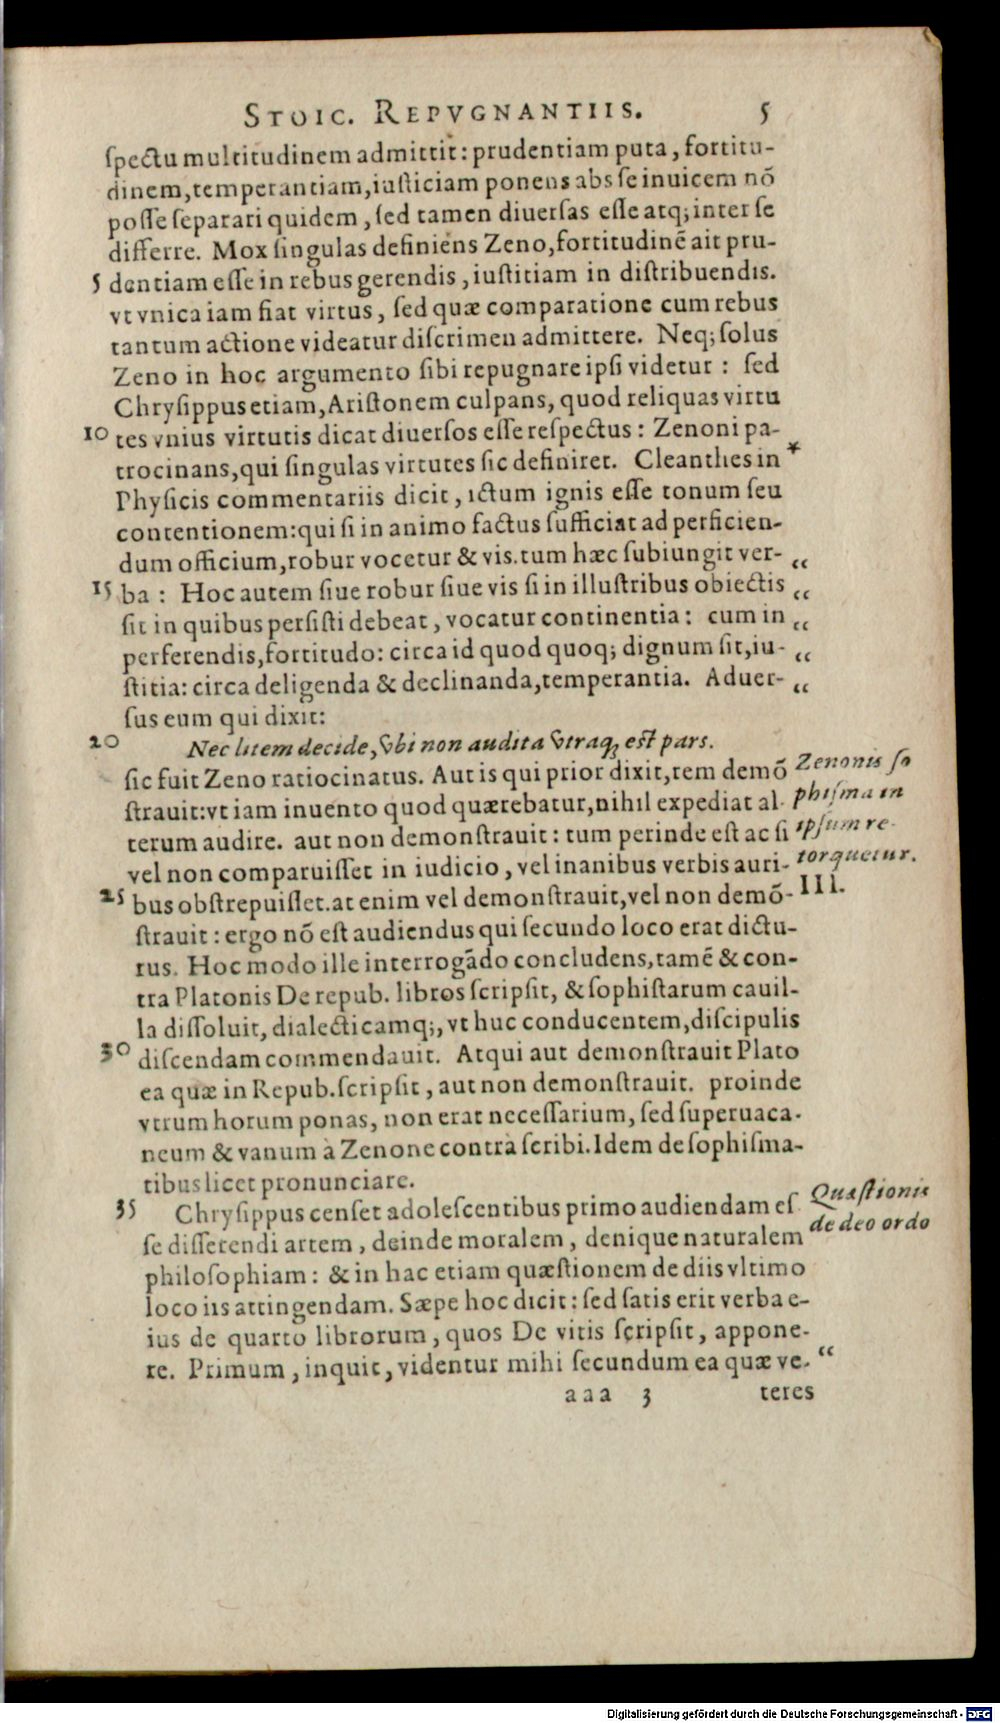 STOIC. REPVGNANTIIS. 5
ſpectu multitudinem admittit: prudentiam puta, fortitu-
dinem, temperantiam, iuſticiam ponens abs ſe inuicem nõ
poſſe ſeparari quidem, ſed tamen diuerſas eſſe atq; inter ſe
differre. Mox ſingulas definiens Zeno, fortitudinẽ ait pru-
5 dentiam eſſe in rebus gerendis, iuſtitiam in diſtribuendis.
vt vnica iam fiat virtus, ſed quæ comparatione cum rebus
tantum actione videatur diſcrimen admittere. Neq; ſolus
Zeno in hoc argumento ſibi repugnare ipſi videtur: ſed
Chryſippus etiam, Ariſtonem culpans, quod reliquas virtu
10 tes vnius virtutis dicat diuerſos eſſe reſpectus: Zenoni pa-
trocinans, qui ſingulas virtutes ſic definiret. Cleanthes in *
Phyſicis commentariis dicit, ictum ignis eſſe tonum ſeu
contentionem: qui ſi in animo factus ſufficiat ad perficien-
dum officium, robur vocetur & vis. tum hæc ſubiungit ver- “
15 ba: Hoc autem ſiue robur ſiue vis ſi in illuſtribus obiectis “
ſit in quibus perſiſti debeat, vocatur continentia: cum in “
perferendis, fortitudo: circa id quod quoq; dignum ſit, iu- “
ſtitia: circa deligenda & declinanda, temperantia. Aduer- “
ſus eum qui dixit:
20 Nec litem decide, vbi non audita vtraq; eſt pars.
ſic fuit Zeno ratiocinatus. Aut is qui prior dixit, rem demõ
ſtrauit: vt iam inuento quod quærebatur, nihil expediat al-
terum audire. aut non demonſtrauit: tum perinde eſt ac ſi
vel non comparuiſſet in iudicio, vel inanibus verbis auri-
25 bus obſtrepuiſſet. at enim vel demonſtrauit, vel non demõ-
ſtrauit: ergo nõ eſt audiendus qui ſecundo loco erat dictu-
rus. Hoc modo ille interrogãdo concludens, tamẽ & con-
tra Platonis De repub. libros ſcripſit, & ſophiſtarum cauil-
la diſſoluit, dialecticamq;, vt huc conducentem, diſcipulis
30 diſcendam commendauit. Atqui aut demonſtrauit Plato
ea quæ in Repub. ſcripſit, aut non demonſtrauit. proinde
vtrum horum ponas, non erat neceſſarium, ſed ſuperuaca-
neum & vanum à Zenone contrà ſcribi. Idem de ſophiſma-
tibus licet pronunciare.
35 Chryſippus cenſet adoleſcentibus primo audiendam eſ
ſe diſſerendi artem, deinde moralem, denique naturalem
philoſophiam: & in hac etiam quæſtionem de diis vltimo
loco iis attingendam. Sæpe hoc dicit: ſed ſatis erit verba e-
ius de quarto librorum, quos De vitis ſcripſit, appone-
re. Primum, inquit, videntur mihi ſecundum ea quæ ve- “
aaa 3 teres
Zenonis ſo
phiſma in
ipſum re-
torquetur.
III.
Quæſtionis
de deo ordo
Digitalisierung gefördert durch die Deutsche Forschungsgemeinschaft - DFG